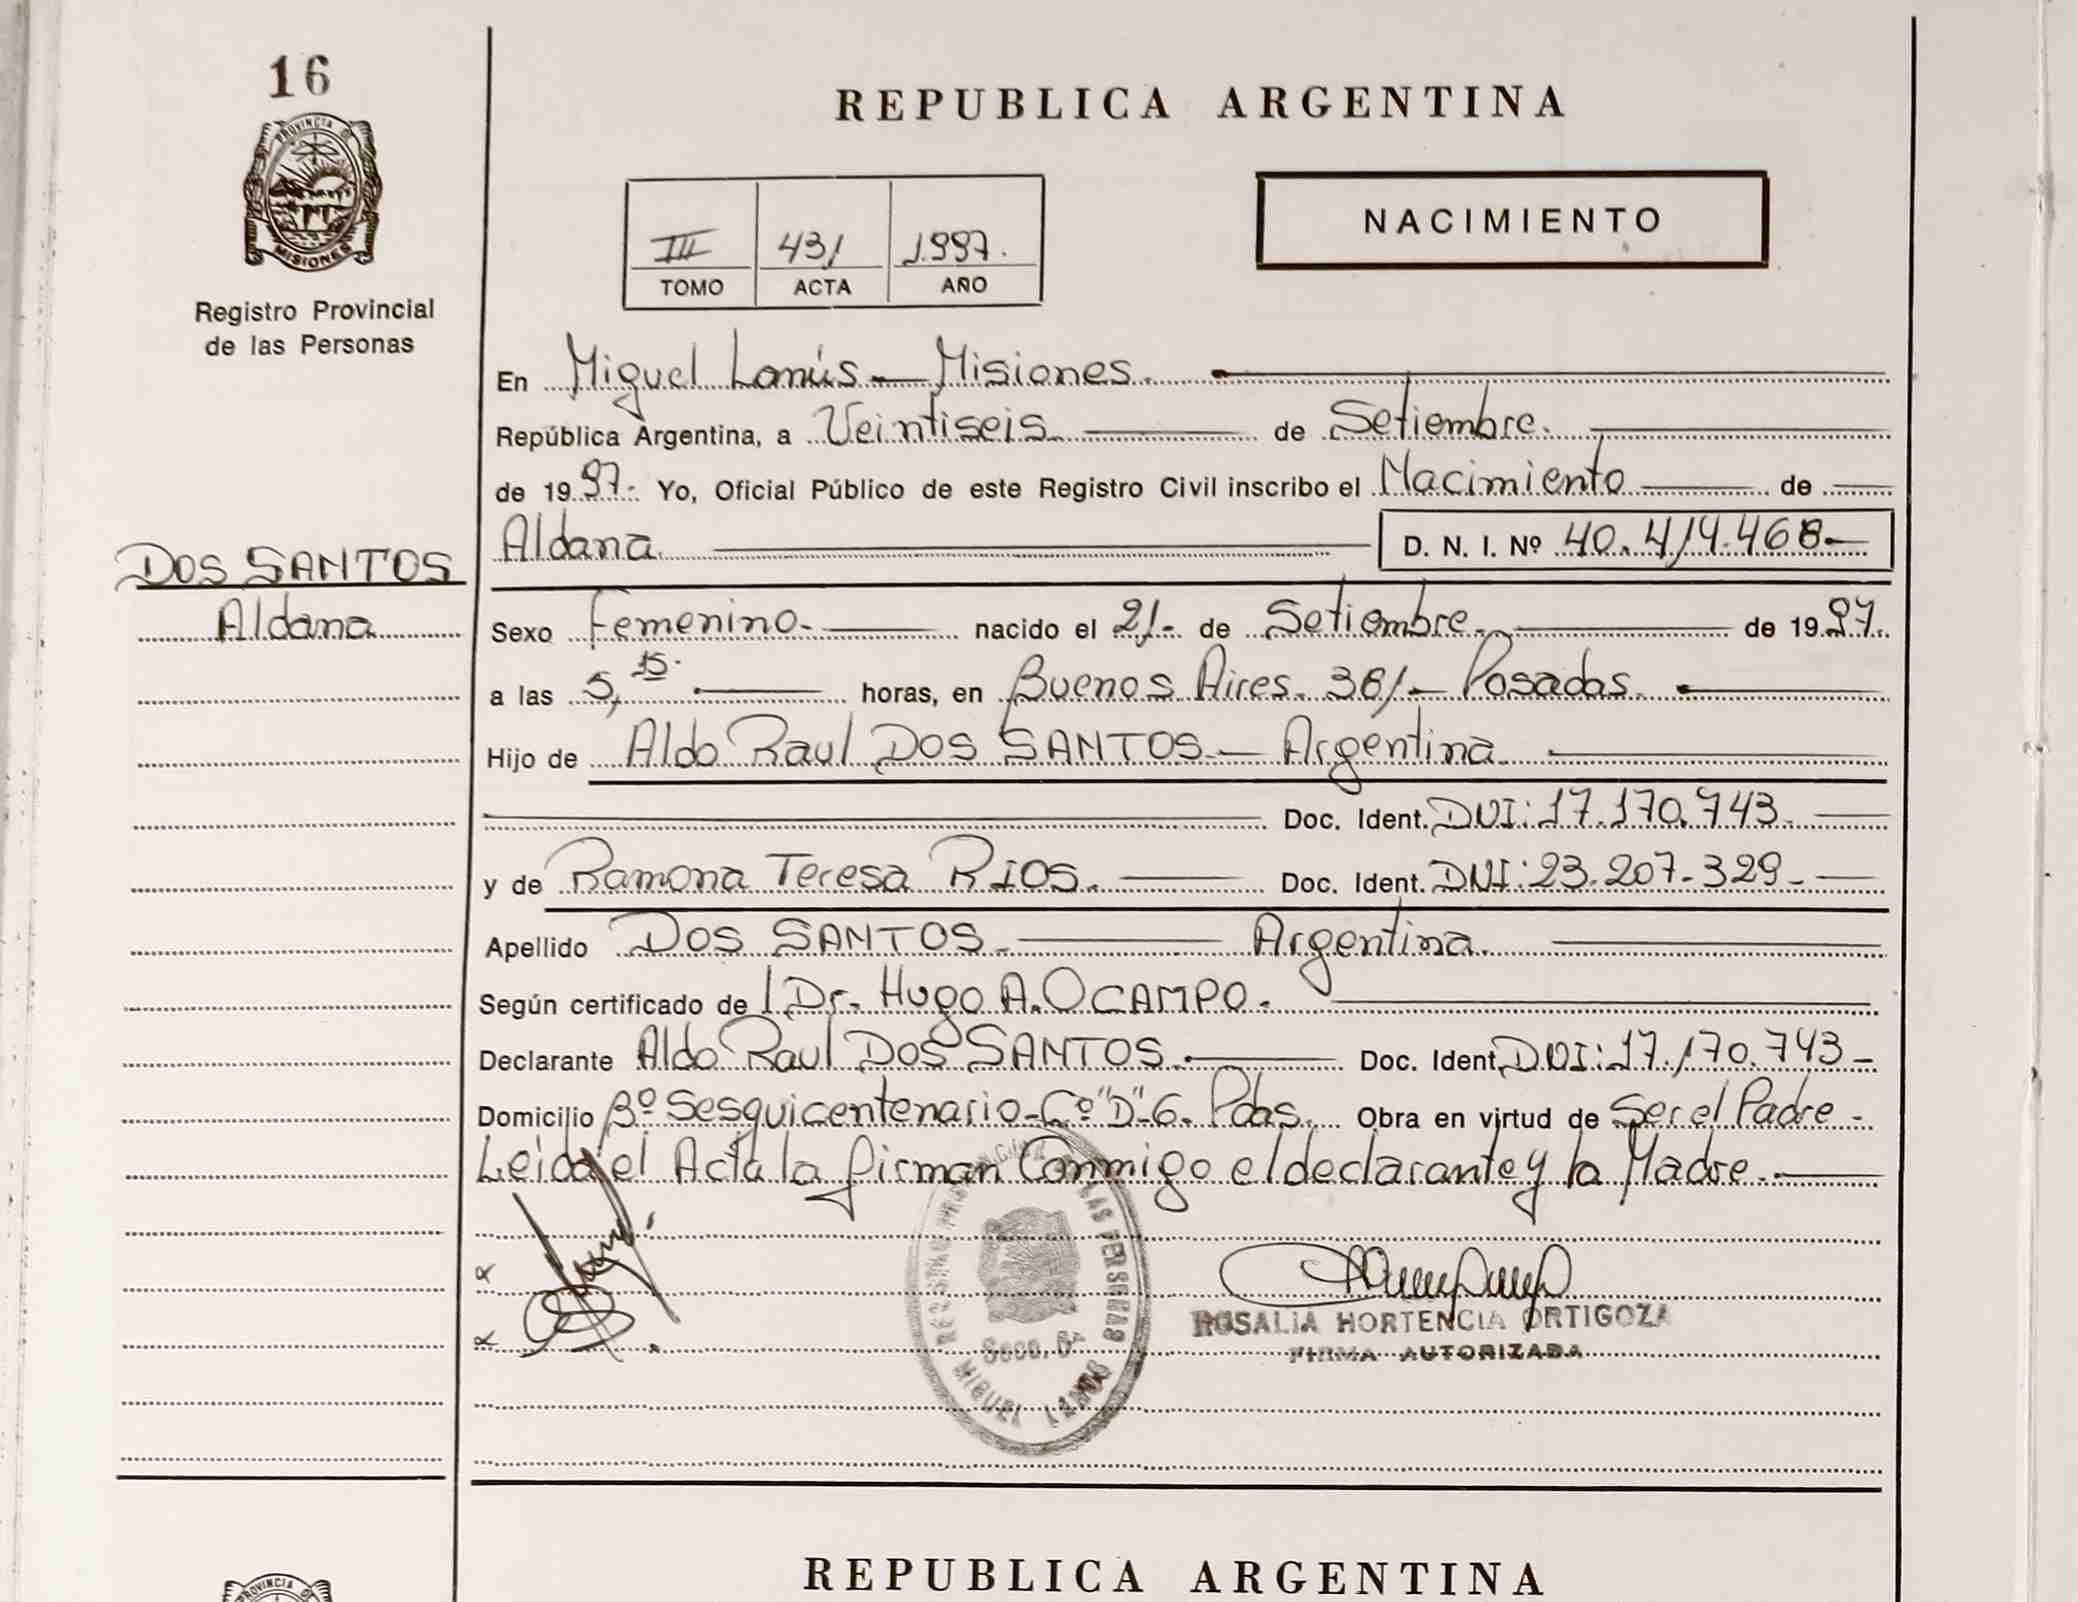 16
PROVINCIA DE
MISIONES
Registro Provincial
de las Personas
REPUBLICA ARGENTINA
III 431 1.997.
TOMO ACTA AÑO
NACIMIENTO
En Miguel Lanús - Misiones.
República Argentina, a Veintiseis de Setiembre.
de 1997. Yo, Oficial Público de este Registro Civil inscribo el Nacimiento de
Aldana. D. N. I. Nº 40.414.468-
DOS SANTOS
Aldana
Sexo Femenino. nacido el 21- de Setiembre. de 1997.
a las 5,15. horas, en Buenos Aires. 381- Posadas.
Hijo de Aldo Raul DOS SANTOS - Argentina
Doc. Ident. DNI: 17.170.743.
y de Ramona Teresa RIOS. Doc. Ident. DNI: 23.207.329-
Apellido DOS SANTOS. Argentina.
Según certificado del Dr. Hugo A. OCAMPO.
Declarante Aldo Raul DOS SANTOS. Doc. Ident. DNI: 17.170.743-
Domicilio Bº Sesquicentenario-Cº "D"-6. Pdas. Obra en virtud de Ser el Padre-
Leida el Acta la firman Conmigo el declarante y la Madre.
REGISTRO PROVINCIAL DE LAS PERSONAS
Secc. 6ª
MIGUEL LANUS
ROSALIA HORTENCIA ORTIGOZA
FIRMA AUTORIZADA
REPUBLICA ARGENTINA
PROVINCIA DE